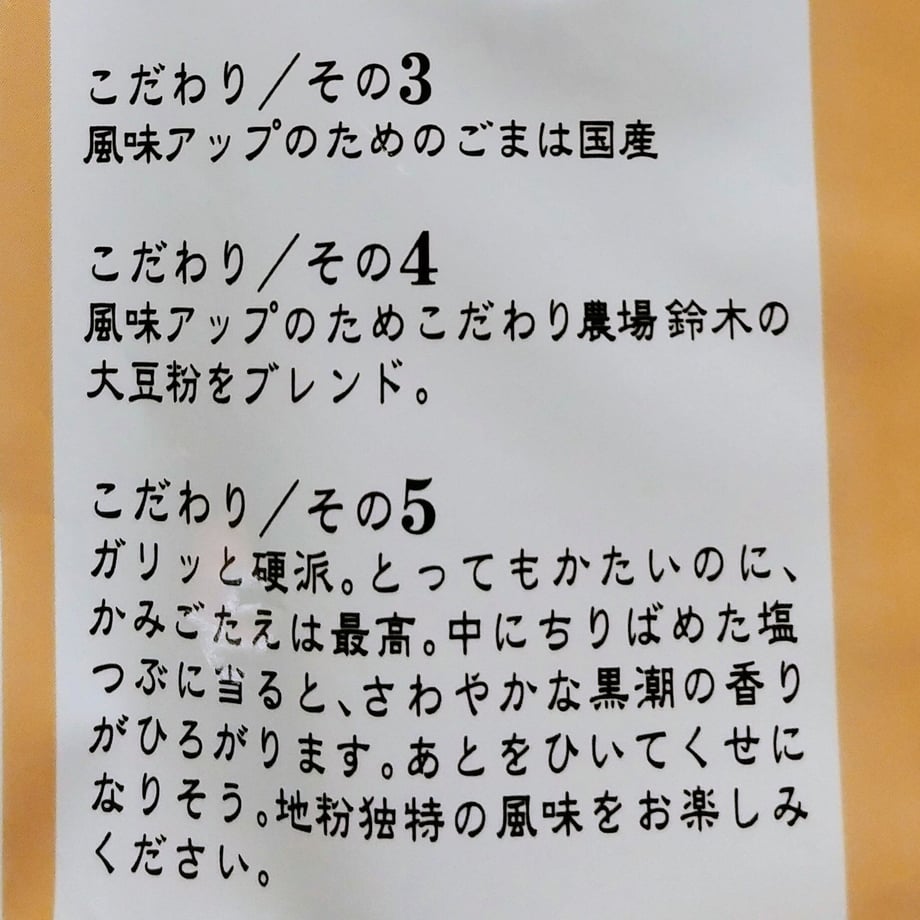 こだわり／その3
風味アップのためのごまは国産
こだわり／その4
風味アップのためこだわり農場鈴木の
大豆粉をブレンド。
こだわり／その5
ガリッと硬派。とってもかたいのに、
かみごたえは最高。中にちりばめた塩
つぶに当ると、さわやかな黒潮の香り
がひろがります。あとをひいてくせに
なりそう。地粉独特の風味をお楽しみ
ください。